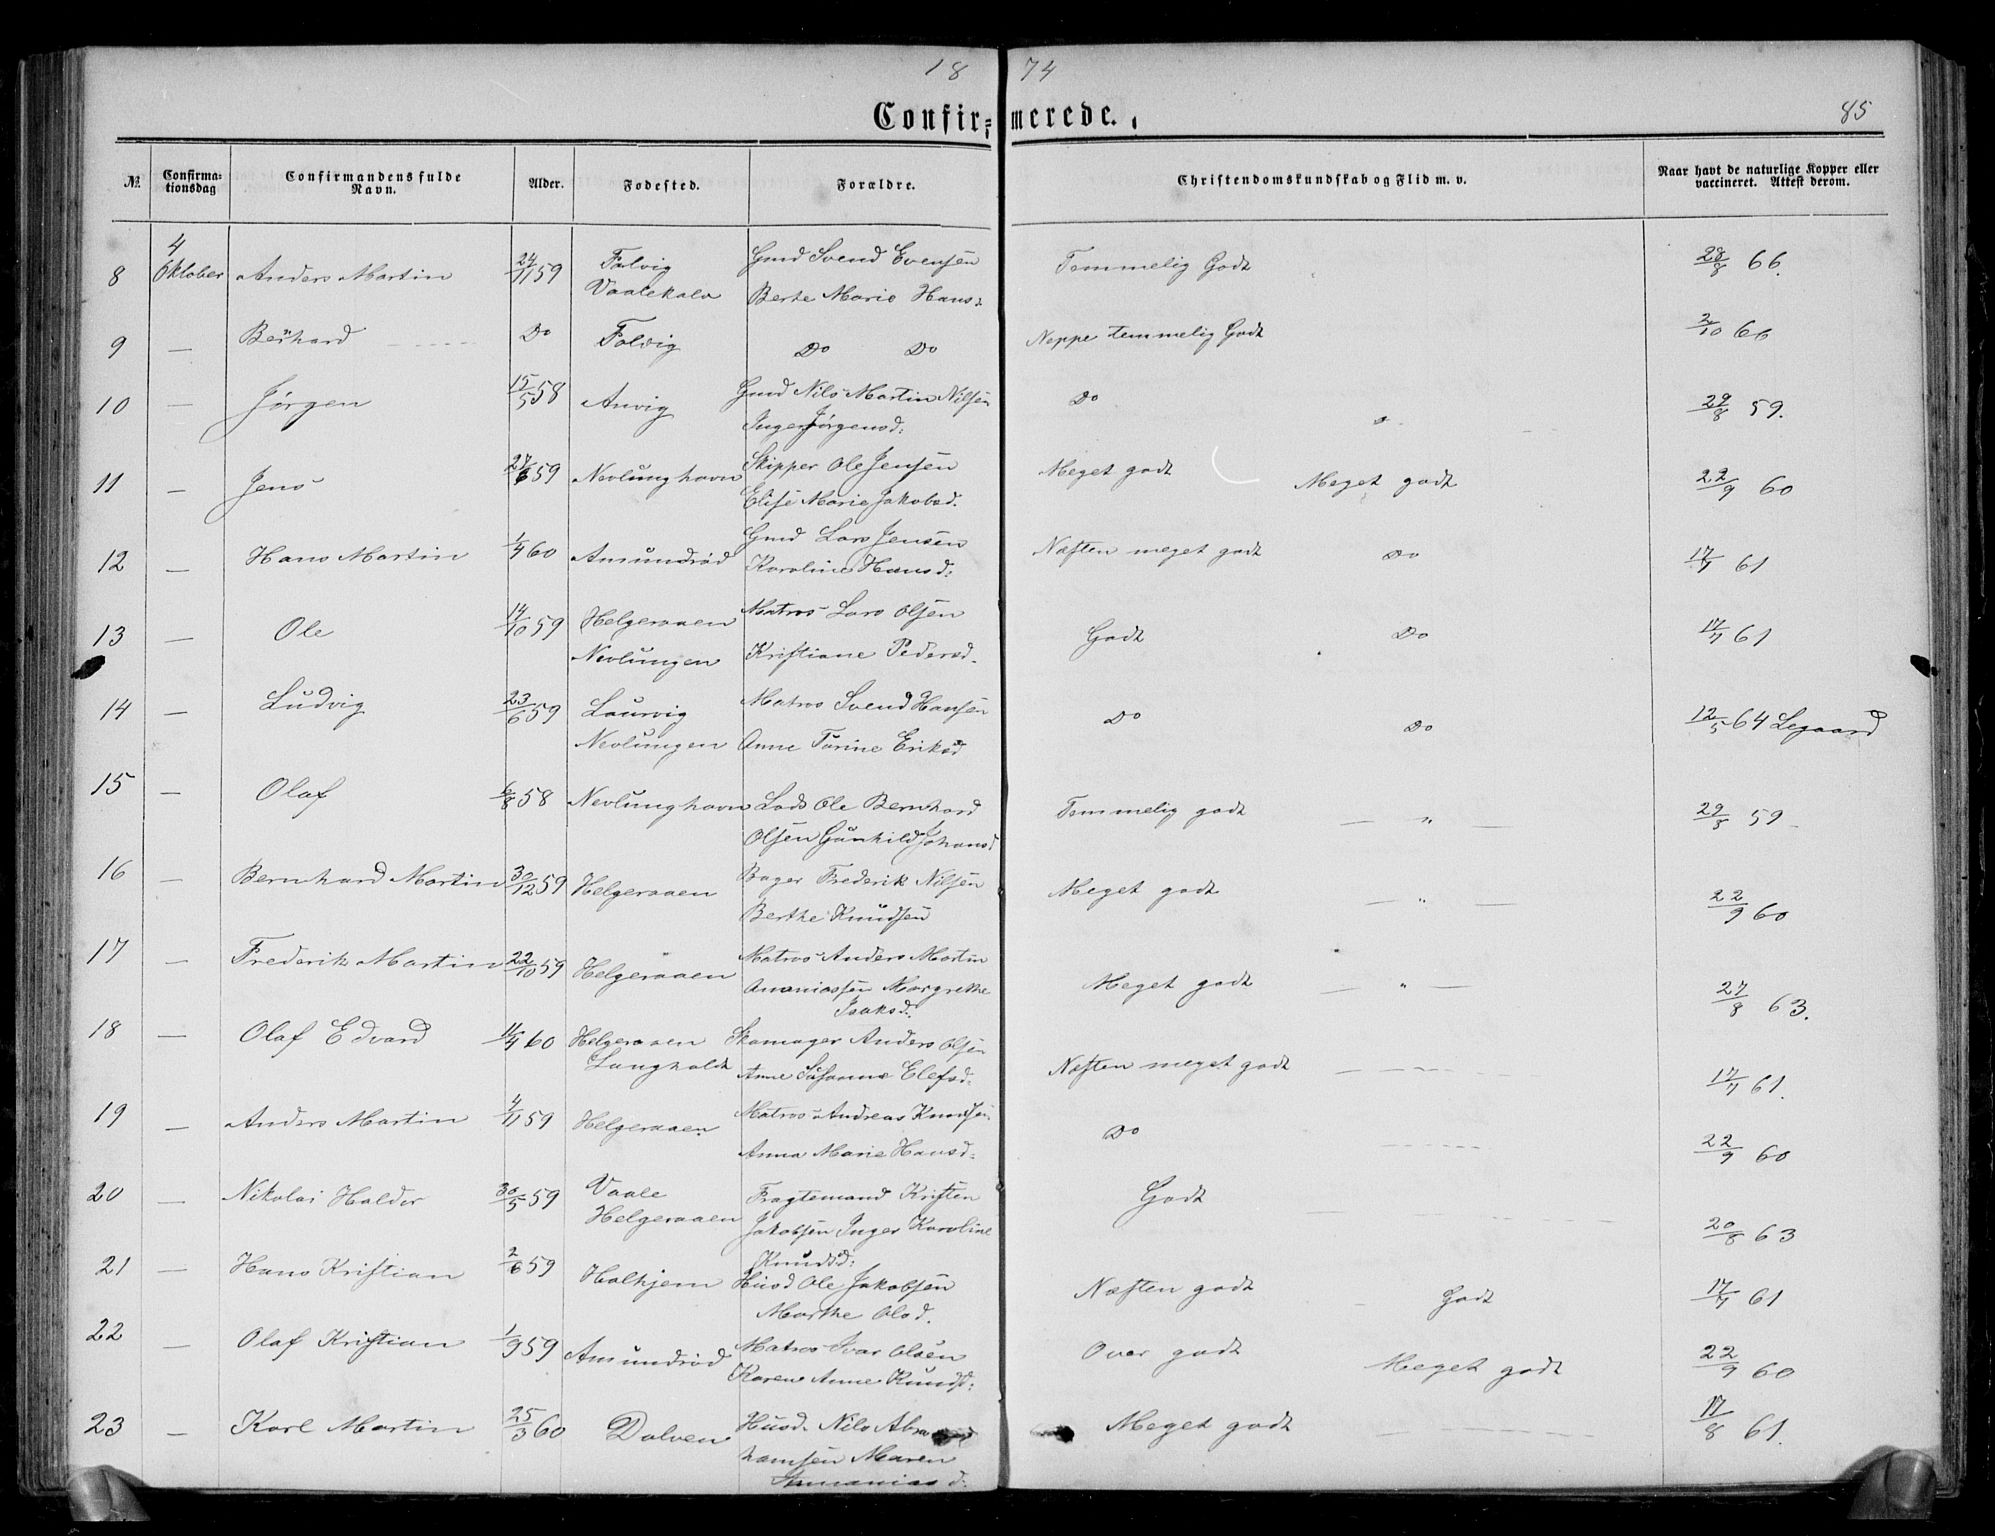 18 74
Confir= merede.
85
№
Confirma-
tionsdag
Confirmandens fulde
Navn.
Alder.
Fødested.
Forældre.
Christendomskundskab og Flid m. v.
Naar havt de naturlige Kopper eller
vaccineret. Attest derom.
8 4 Oktober Anders Martin 24/11 59 Folvig Gmd Svend Evensen Temmelig Godt 28/8 66.
Berte Marie Hansd:
9 — Bernhard Do Folvig Do Do Neppe temmelig Godt 2/10 66
10 — Jørgen 15/5 58 Anvig Gmd Nils Martin Nilsen Do 29/8 59.
Inger Jørgensd:
11 — Jens 27/6 59 Nevlunghavn Skipper Ole Jensen Meget godt Meget godt 22/9 60
Elise Marie Jakobsd.
12 — Hans Martin 1/4 60 Amundrød Gmd Lars Jensen Næsten meget godt Do 17/7 61
Karoline Hansd:
13 — Ole 14/10 59 Helgeraaen Matros Lars Olsen Godt Do 17/7 61
Nevlungen Kristiane Pedersd.
14 — Ludvig 23/6 59 Laurvig Matros Svend Hansen Do Do 12/5 64 Legaard
Nevlungen Anne Torine Eriksd
15 — Olaf 6/8 58 Nevlunghavn Lods Ole Bernhard Temmelig godt — " — 29/8 59
Olsen Gunhild Johansd
16 — Bernhard Martin 30/12 59 Helgeraaen Bager Frederik Nilsen Meget godt — " — 22/9 60
Berthe Knudsen
17 — Frederik Martin 22/10 59 Helgeraaen Matros Anders Martin Meget godt — " — 27/8 63.
Ananiassen Margrethe
Isaksd.
18 — Olaf Edvard 11/4 60 Helgeraaen Skomager Anders Olsen Næsten meget godt 17/7 61.
Langholdt Anne Susanne Elefsd:
19 — Anders Martin 4/11 59 Helgeraaen Matros Andreas Knudsen Do 22/9 60
Anna Marie Hansd:
20 — Nikolai Halder 30/5 59 Vaale Fragtemand Kristen Godt 20/8 63
Helgeraaen Jakobsen Inger Karoline
Knudsd:
21 — Hans Kristian 2/6 59 Holhjem Husd Ole Jakobsen Næsten godt Godt 17/7 61
Marthe Olsd.
22 — Olaf Kristian 1/9 59 Amundrød Matros Ivar Olsen Over godt Meget godt 22/9 60
Karen Anne Knudsd:
23 — Karl Martin 25/3 60 Dolven Husd. Nils Abra Meget godt 17/8 61.
hamsen Maren
Annaniasd: